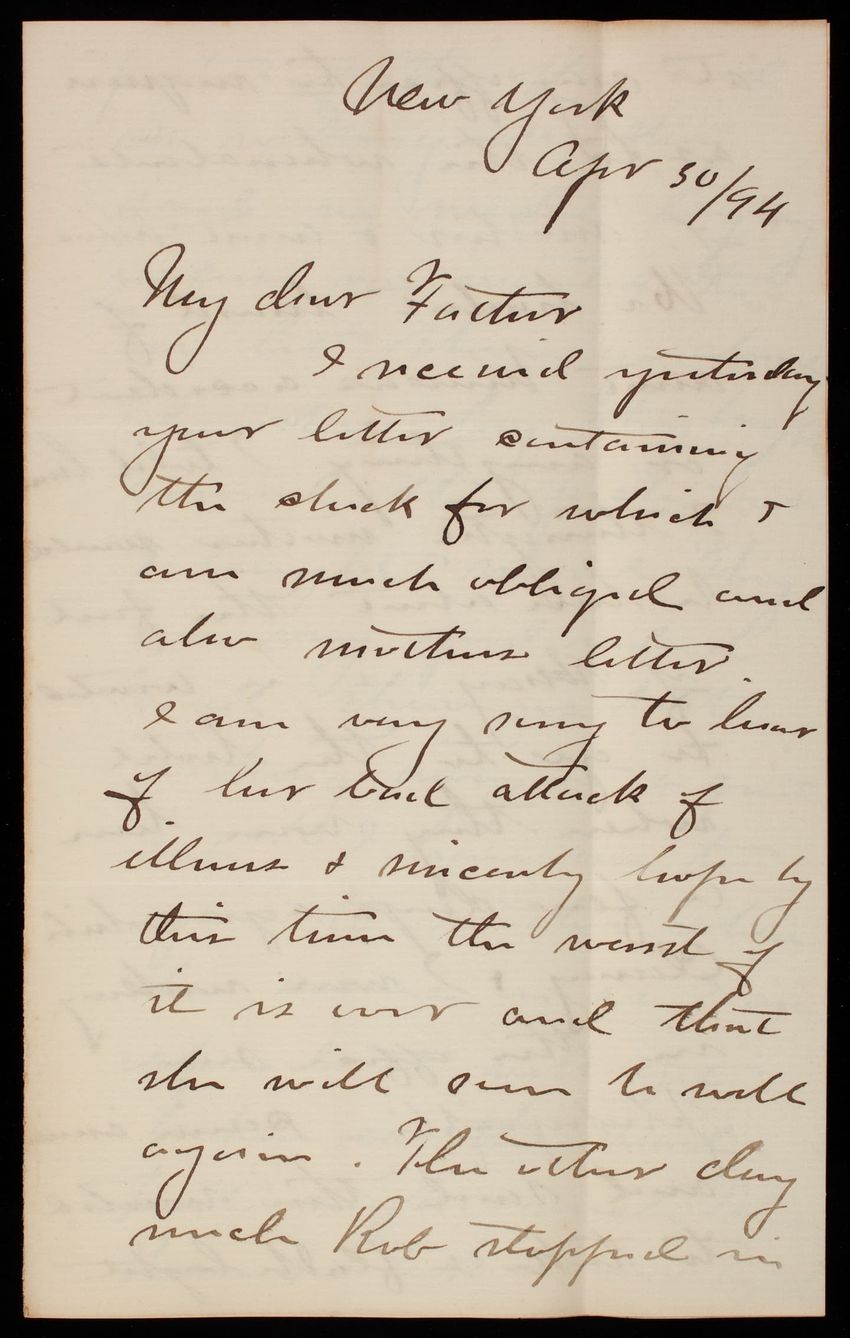 New York
Apr 30/94
My dear Father
I received yesterday
your letter containing
the check for which I
am much obliged and
also mothers letter.
I am very sorry to hear
of her bad attack of
illness & sincerely hope by
this time the worst of
it is over and that
she will soon be well
again. The other day
uncle Rob stopped in